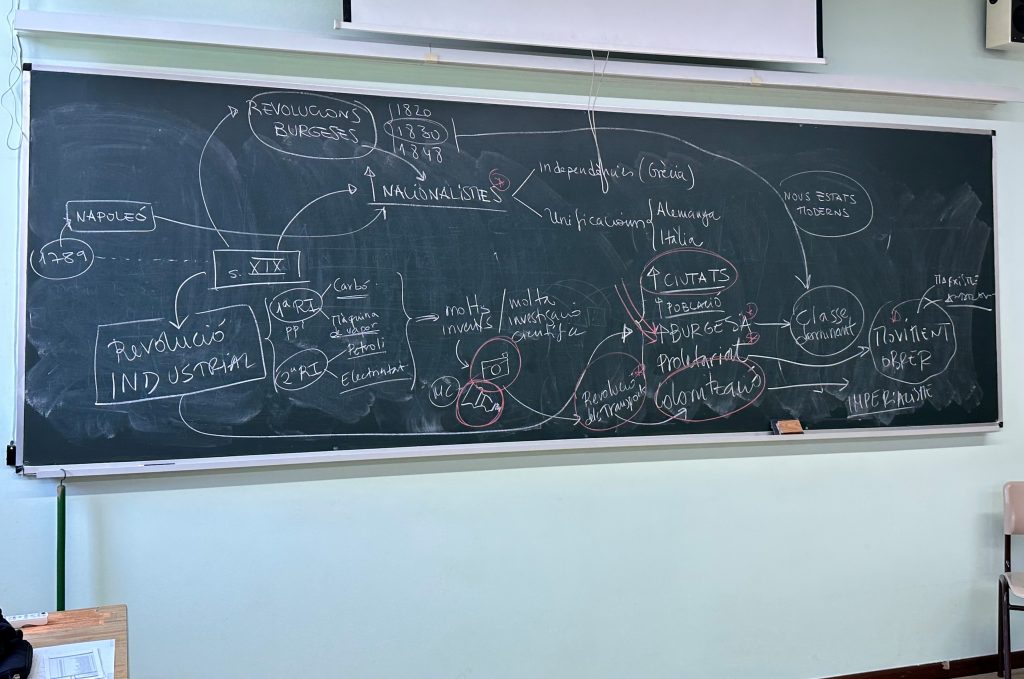 REVOLUCIONS
BURGESES
1820
1830
1848
NACIONALISMES
Independències (Grècia)
Unificacions
Alemanya
Itàlia
NOUS ESTATS
MODERNS
NAPOLEÓ
1789
s. XIX
REVOLUCIÓ
INDUSTRIAL
1ª RI
Carbó
Màquina
de vapor
2ª RI
Petroli
Electricitat
molts
invents
molta
investigació
científica
↑ CIUTATS
↑ POBLACIÓ
↑ BURGESIA
Proletariat
Colonització
Revolució
dels Transports
Classe
dominant
MOVIMENT
OBRER
IMPERIALISME